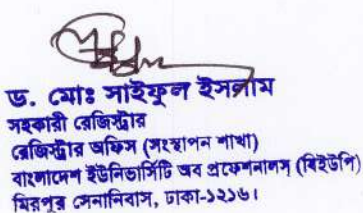 ড. মোঃ সাইফুল ইসলাম
সহকারী রেজিস্ট্রার
রেজিস্ট্রার অফিস (সংস্থাপন শাখা)
বাংলাদেশ ইউনিভার্সিটি অব প্রফেশনালস্ (বিইউপি)
মিরপুর সেনানিবাস, ঢাকা-১২১৬।